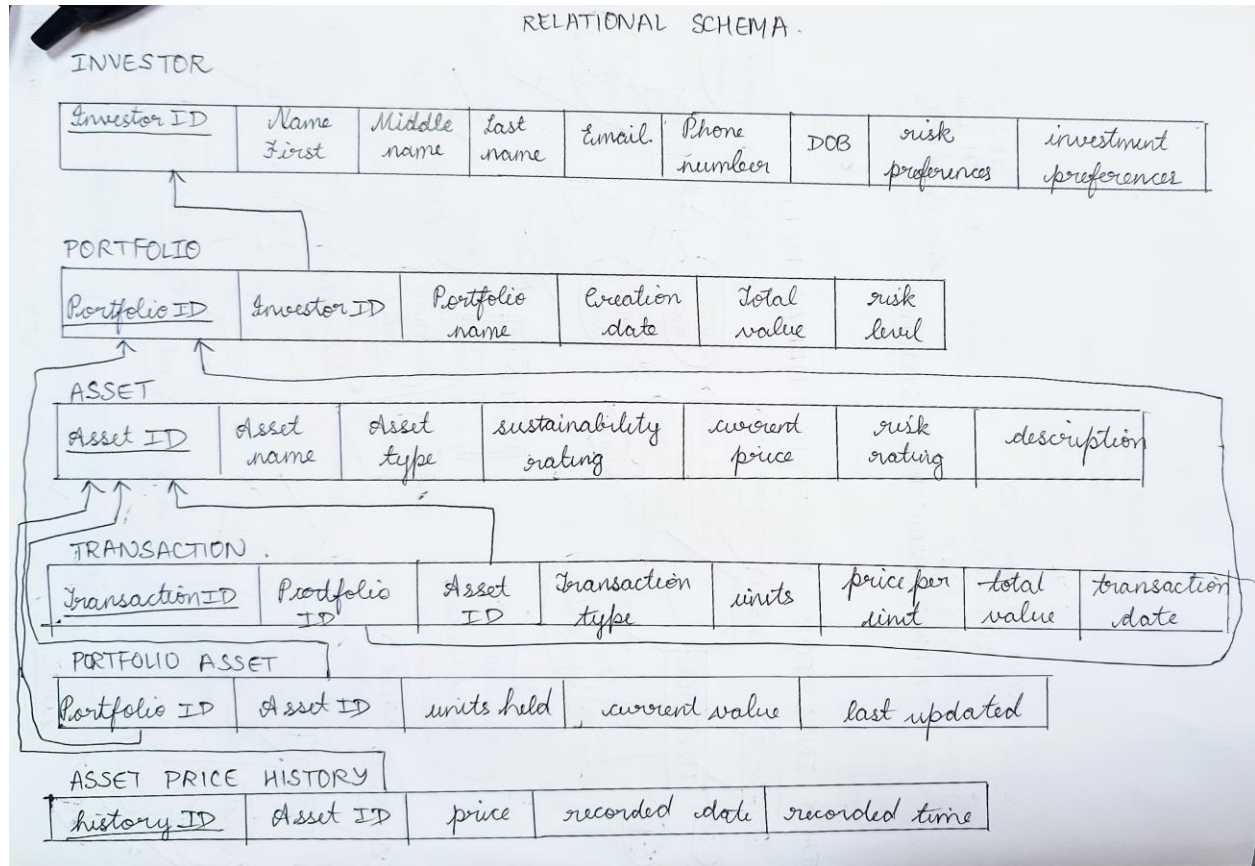 RELATIONAL SCHEMA.
INVESTOR
Investor ID | Name First | Middle name | Last name | Email. | Phone number | DOB | risk preferences | investment preferences
PORTFOLIO
Portfolio ID | Investor ID | Portfolio name | Creation date | Total value | risk level
ASSET
Asset ID | Asset name | Asset type | sustainability rating | current price | risk rating | description
TRANSACTION.
Transaction ID | Prodfolio ID | Asset ID | Transaction type | units | price per unit | total value | transaction date
PORTFOLIO ASSET
Portfolio ID | Asset ID | units held | current value | last updated
ASSET PRICE HISTORY
history ID | Asset ID | price | recorded date | recorded time